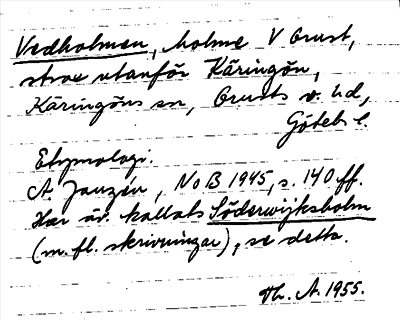 Vedholmen, holme V Orust,
strax utanför Käringön,
Käringöns sn, Orusts v. hd,
Göteb l.
Etymologi.
A. Janzén, NoB 1945, s. 140 ff.
Har äv. kallats Söderwijksholm
(m. fl. skrivningar), se detta.
Th. A. 1955.